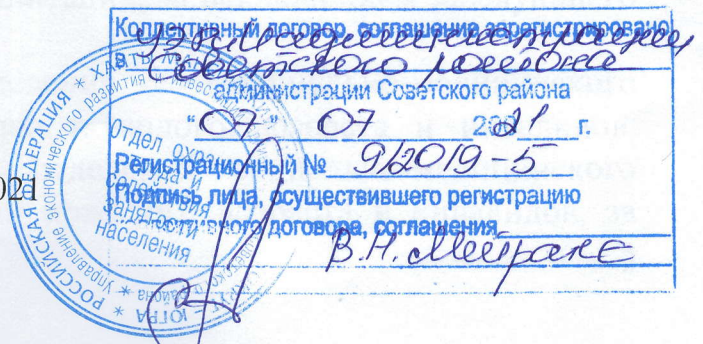 Коллективный договор, соглашение зарегистрировано
в УЭРиИ администрации
Советского района
администрации Советского района
“07” 07 2021 г.
Регистрационный № 9/2019-5
Подпись лица, осуществившего регистрацию
коллективного договора, соглашения
В.Н. Мейране
021
РОССИЙСКАЯ ФЕДЕРАЦИЯ * ХАНТЫ-М
ЮГРА
Управление экономического развития и инвестиций
района
Отдел охраны
труда и
содействия
занятости
населения